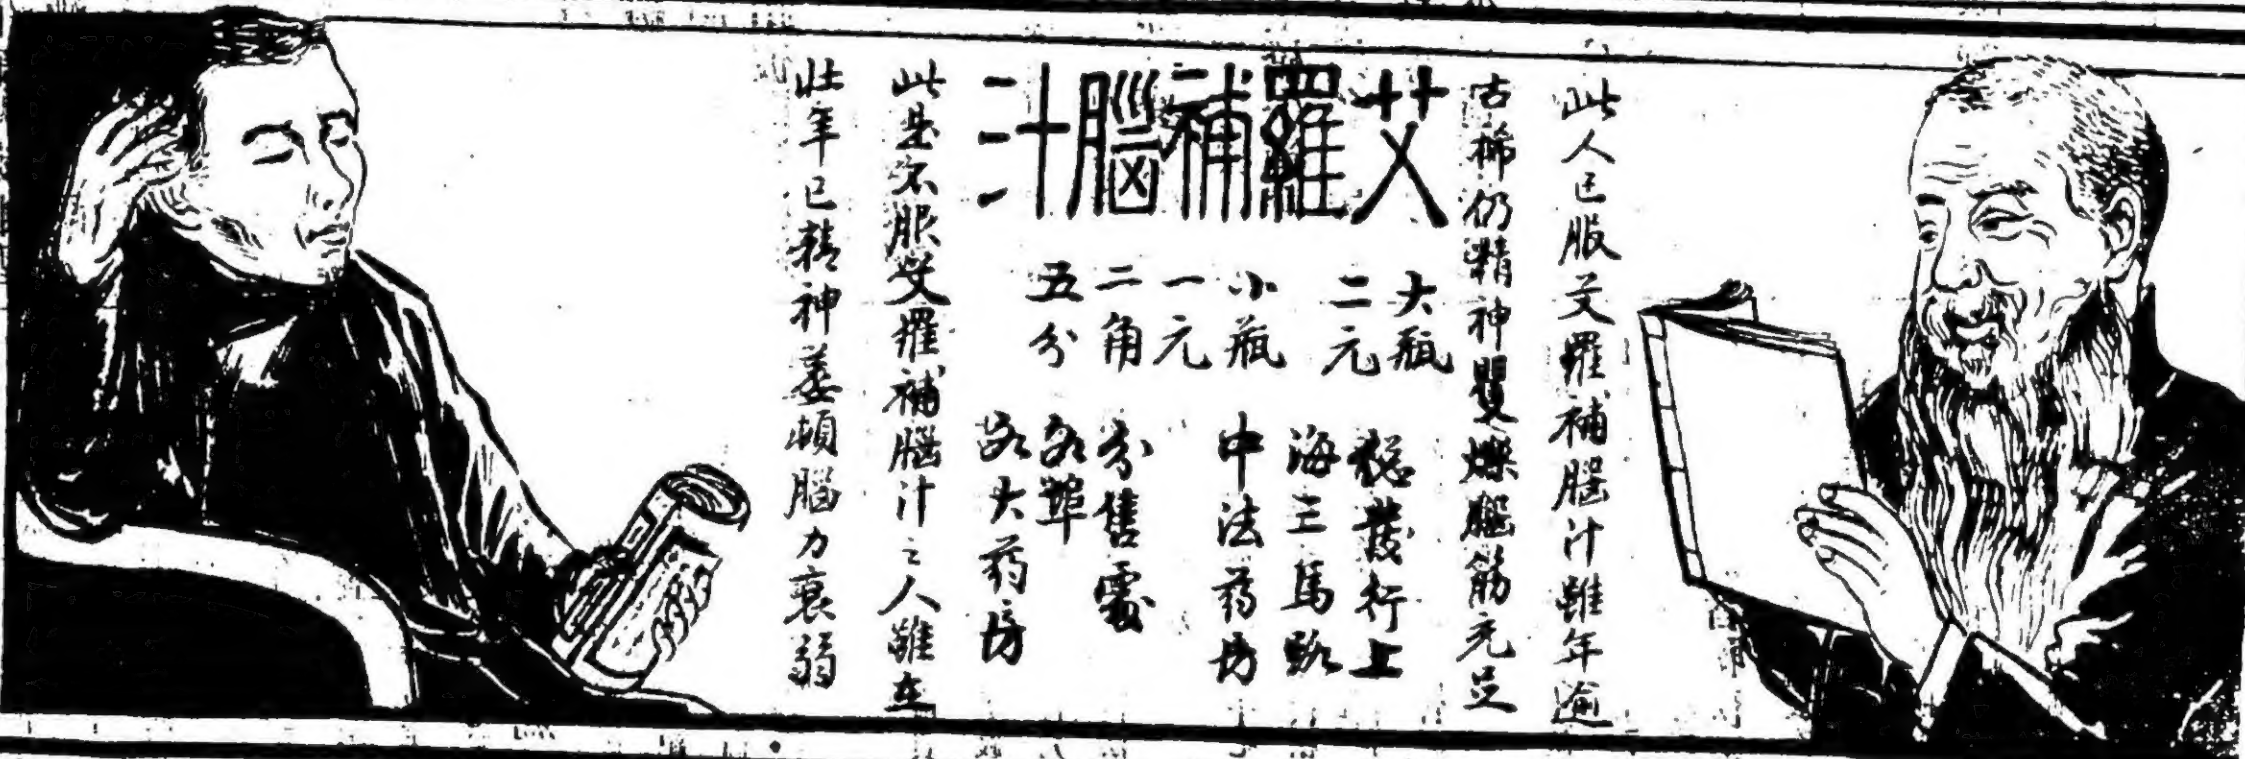 此人已服艾羅補腦汁雖年逾
古稀仍精神矍爍腦筋充足
艾羅補腦汁
大瓶
二元
小瓶
一元
二角
五分
總發行上
海三馬路
中法葯房
分售處
各埠
各大葯房
此是不服艾羅補腦汁之人雖在
壯年已精神萎頓腦力衰弱